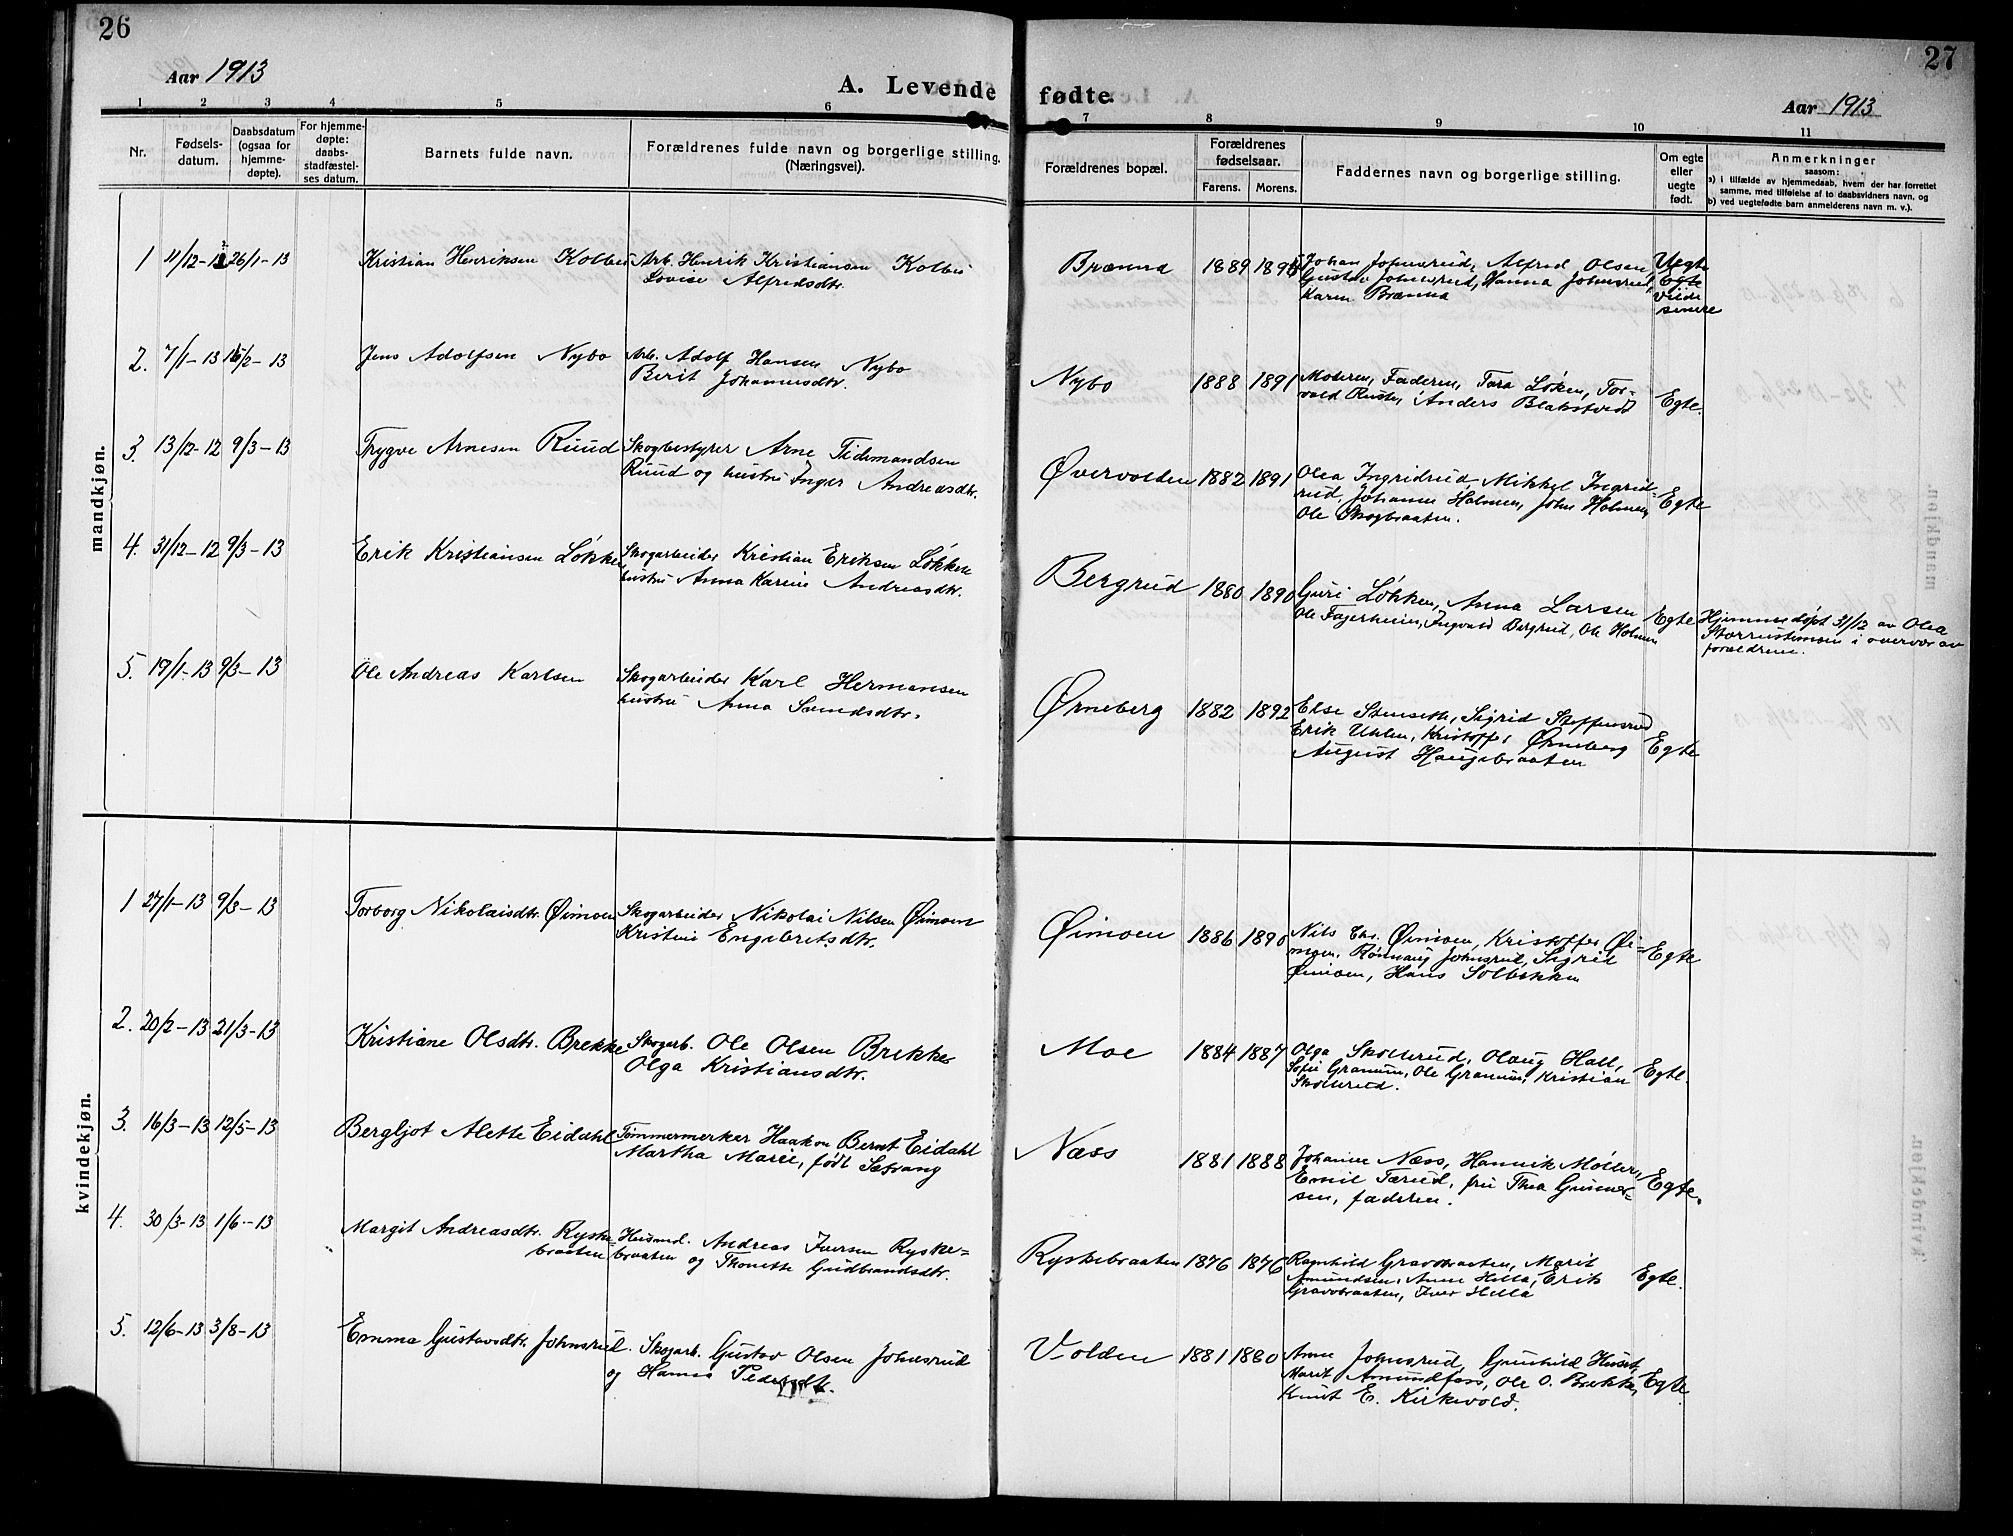 26
27
Aar 1913
A. Levende fødte.
Aar 1913
1 2 3 4 5 6 7 8 9 10 11
Nr.
Fødsels-
datum.
Daabsdatum
(ogsaa for
hjemme-
døpte).
For hjemme-
døpte:
daabs-
stadfæstel-
ses datum.
Barnets fulde navn.
Forældrenes fulde navn og borgerlige stilling.
(Næringsvei).
Forældrenes bopæl.
Forældrenes
fødselsaar.
Farens. Morens.
Faddernes navn og borgerlige stilling.
Om egte
eller
uegte
født.
Anmerkninger
saasom:
a) i tilfælde av hjemmedaab, hvem der har forrettet
samme, med tilføielse af to daabsvidners navn, og
b) ved uegtefødte barn anmelderens navn m. v.).
mandkjøn.
1 11/12-12 26/1-13 Kristian Henriksen Kolbu Arb. Henrik Kristiansen Kolbu
Lovise Alfredsdtr.
Brænna 1889 Johan Johnsrud, Alfred Olsen,
Gustav Johnsrud, Hanna Johnsrud,
Karen Brænna
Uegte
Egte
senere
2. 7/1-13 16/2-13 Jens Adolfsen Nybo Arb. Adolf Hansen Nybo
Berit Johannesdtr.
Nybo 1888 1891 Moderen, Faderen, Tora Løken, Tor-
vald Ruste, Anders Blakstvedt
Egte.
3. 13/12-12 9/3-13 Trygve Arnesen Ruud Skogbestyrer Arne Tidemandsen
Ruud og hustru Inger Andreasdtr.
Øvervolden 1882 1891 Olea Ingridrud, Mikkel Ingrid-
rud, Johanne Holmen, John Holmen,
Ole Skogbraaten.
Egte
4. 31/12-12 9/3-13 Erik Kristiansen Løkken Skogarbeider Kristian Eriksen Løkken
hustru Anna Karine Andreasdtr.
Bergrud 1880 1890 Guri Løkken, Anna Larsen
Ole Fagerheim, Ingvald Bergrud, Ole Holmen
Egte
Hjemmedøpt 31/12 av Olea
i overvær av
forældrene.
5. 19/1-13 9/3-13 Ole Andreas Karlsen Skogarbeider Karl Hermansen
hustru Anna Svendsdtr.
Ørneberg 1882 1892 Else Stenseth, Sigrid Steffensrud
Erik Uhlen, Kristoffer Ørneberg
August Haugsbraaten
Egte
kvindekjøn.
1 27/1-13 9/3-13 Torborg Nikolaisdtr. Øimoen Skogarbeider Nikolai Nilsen Øimoen
Kristine Engebretsdtr.
Øimoen 1886 1890 Nils Chr. Øimoen, Kristoffer Øi-
moen, Rønnaug Johnsrud, Sigrid
Øimoen, Hans Solbakken
Egte
2. 20/2-13 21/3-13 Kristiane Olsdtr. Brekke Skogarb. Ole Olsen Brekke
Olga Kristiansdtr.
Moe 1884 1887 Olga Skollerud, Olaug Hall,
Sofie Granum, Ole Granum, Kristian
Skollerud.
Egte.
3. 16/3-13 12/5-13 Bergljot Alette Eidahl Tømmermerker Haakon Bernt Eidahl
Martha Marie, født Sætrang
Næss 1881 1888 Johanne Næss, Henrik Møller,
Emil Tærud, fru Thea Gunner-
sen, faderen.
Egte.
4. 30/3-13 1/6-13 Margit Andreasdtr. Ryske-
braaten
Husmd. Andreas Iversen Ryske=
braaten og Thonette Gudbrandsdtr.
Ryskebraaten 1876 1876 Ragnhild Gravbraaten, Marit
Amundsen, Anne Hilla, Erik
Gravbraaten, Iver Hilla
Egte.
5. 12/6-13 3/8-13 Emma Gustavsdtr. Johnsrud. Skogarb. Gustav Olsen Johnsrud
og Hanna Pedersdtr.
Volden 1881 1880 Anne Johnsrud, Gunhild Huset,
Marit Amundfoss, Ole O. Brekke,
Knut E. Kirkevold.
Egte